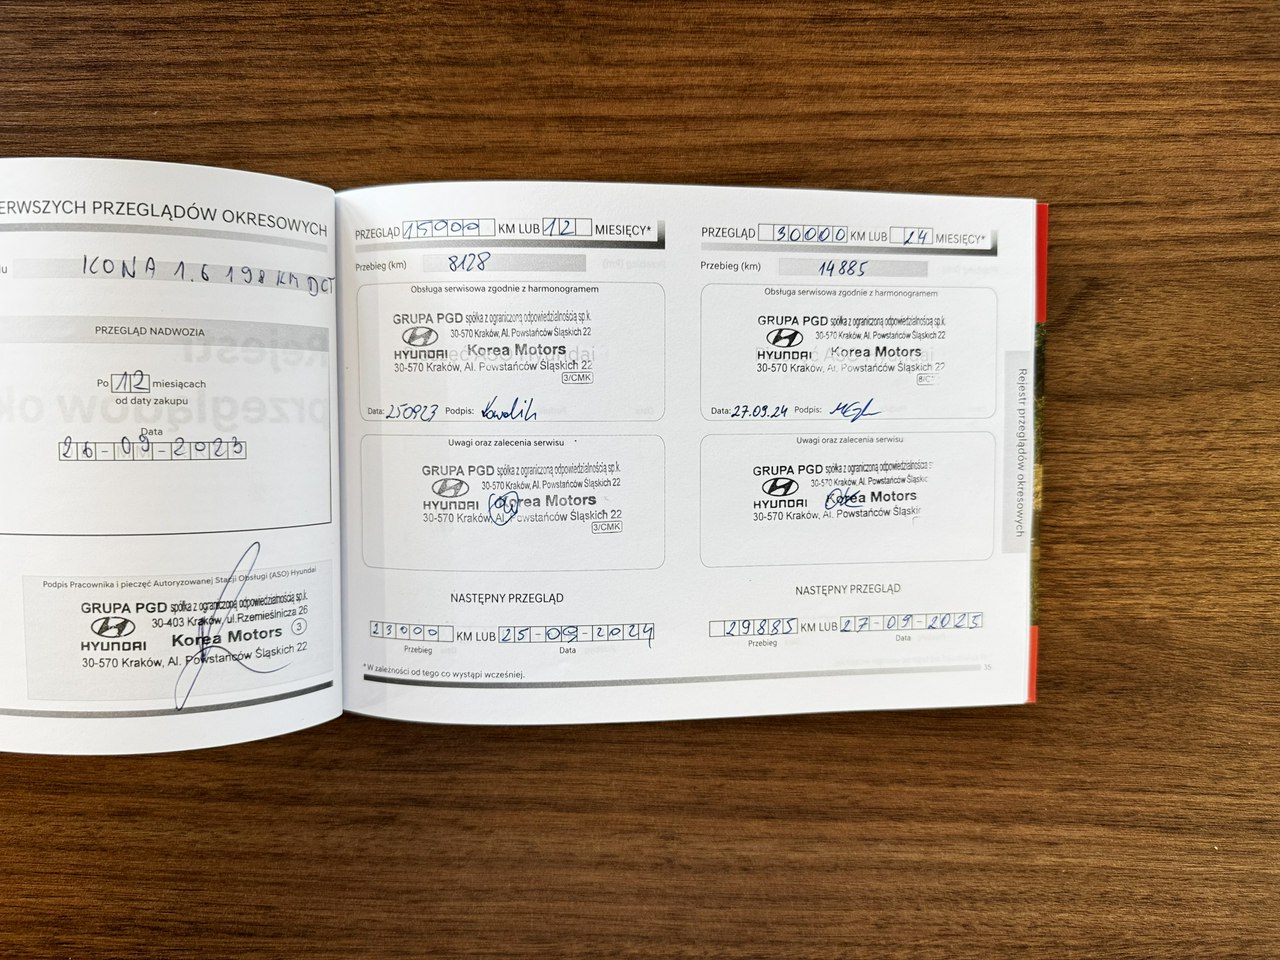 ERWSZYCH PRZEGLĄDÓW OKRESOWYCH
lu KONA 1.6 198 KM DCT
PRZEGLĄD NADWOZIA
Po 12 miesiącach
od daty zakupu
Data
26-09-2023
Podpis Pracownika i pieczęć Autoryzowanej Stacji Obsługi (ASO) Hyundai
GRUPA PGD spółka z ograniczoną odpowiedzialnością sp.k.
30-403 Kraków, ul. Rzemieślnicza 26
HYUNDAI Korea Motors 3
30-570 Kraków, Al. Powstańców Śląskich 22
PRZEGLĄD 15000 KM LUB 12 MIESIĘCY*
Przebieg (km) 8128
Obsługa serwisowa zgodnie z harmonogramem
GRUPA PGD spółka z ograniczoną odpowiedzialnością sp.k.
30-570 Kraków, Al. Powstańców Śląskich 22
HYUNDAI Korea Motors
30-570 Kraków, Al. Powstańców Śląskich 22
3/CMK
Data: 250923 Podpis:
Uwagi oraz zalecenia serwisu
GRUPA PGD spółka z ograniczoną odpowiedzialnością sp.k.
30-570 Kraków, Al. Powstańców Śląskich 22
HYUNDAI Korea Motors
30-570 Kraków, Al. Powstańców Śląskich 22
3/CMK
NASTĘPNY PRZEGLĄD
23000 KM LUB 25-09-2024
Przebieg Data
*W zależności od tego co wystąpi wcześniej.
PRZEGLĄD 30000 KM LUB 24 MIESIĘCY*
Przebieg (km) 14885
Obsługa serwisowa zgodnie z harmonogramem
GRUPA PGD spółka z ograniczoną odpowiedzialnością sp.k.
30-570 Kraków, Al. Powstańców Śląskich 22
HYUNDAI Korea Motors
30-570 Kraków, Al. Powstańców Śląskich 22
Data: 27.09.24 Podpis:
Uwagi oraz zalecenia serwisu
GRUPA PGD spółka z ograniczoną odpowiedzialnością s
30-570 Kraków, Al. Powstańców Śląskic
HYUNDAI Korea Motors
30-570 Kraków, Al. Powstańców Śląskic
NASTĘPNY PRZEGLĄD
29885 KM LUB 27-09-2025
Przebieg Data
35
Rejestr przeglądów okresowych